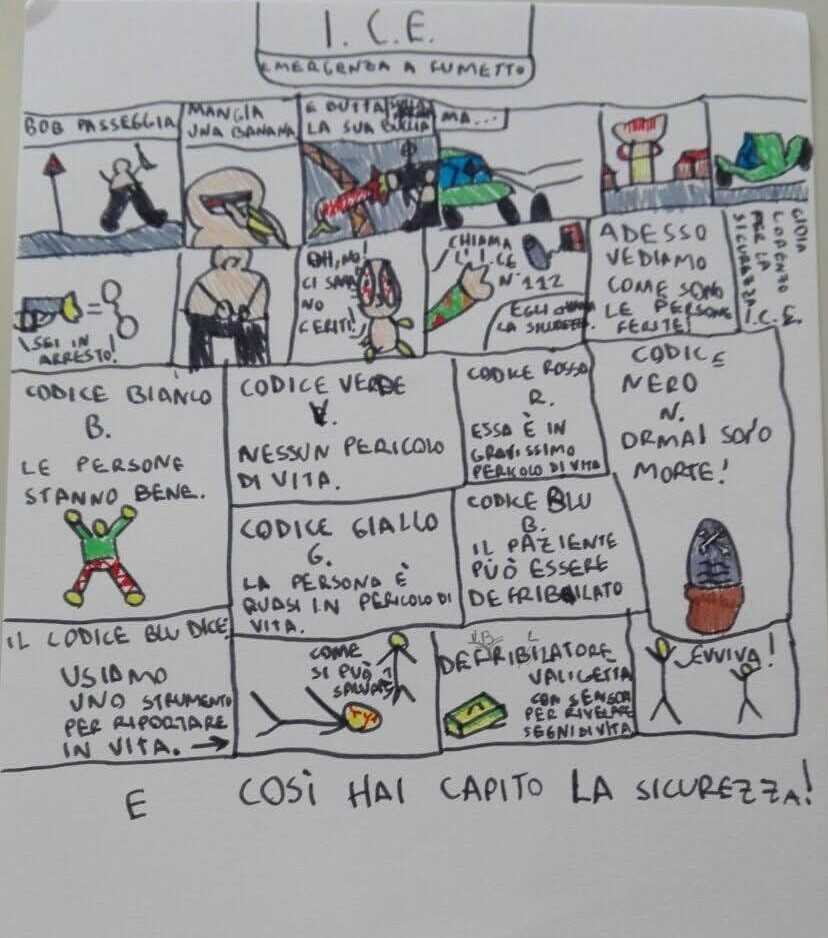 I. C. E.
EMERGENZA A FUMETTO
BOB PASSEGGIA
MANGIA
UNA BANANA
E BUTTA
LA SUA BUCCIA
MA...
SEI IN
ARRESTO!
OH, NO!
CI SONO
NO
FERITI!
CHIAMA
L'I.CE
N° 112
EGLI CHIAMA
LA SICUREZZA.
ADESSO
VEDIAMO
COME SONO
LE PERSONE
FERITE!
GIOIA
LORENZO
PER LA
SICUREZZA
I.C.E.
CODICE BIANCO
B.
LE PERSONE
STANNO BENE.
CODICE VERDE
V.
NESSUN PERICOLO
DI VITA.
CODICE ROSSO
R.
ESSA È IN
GRAVISSIMO
PERICOLO DI VITA
CODICE
NERO
N.
ORMAI SONO
MORTE!
CODICE GIALLO
G.
LA PERSONA È
QUASI IN PERICOLO DI
VITA.
CODICE BLU
B.
IL PAZIENTE
PUÒ ESSERE
DEFRIBILATO
IL CODICE BLU DICE:
USIAMO
UNO STRUMENTO
PER RIPORTARE
IN VITA. →
COME
SI PUÒ
SALVARE?
DEFRIBILATORE
VALIGETTA
CON SENSORI
PER RIVELARE
SEGNI DI VITA
EVVIVA!
E COSÌ HAI CAPITO LA SICUREZZA!